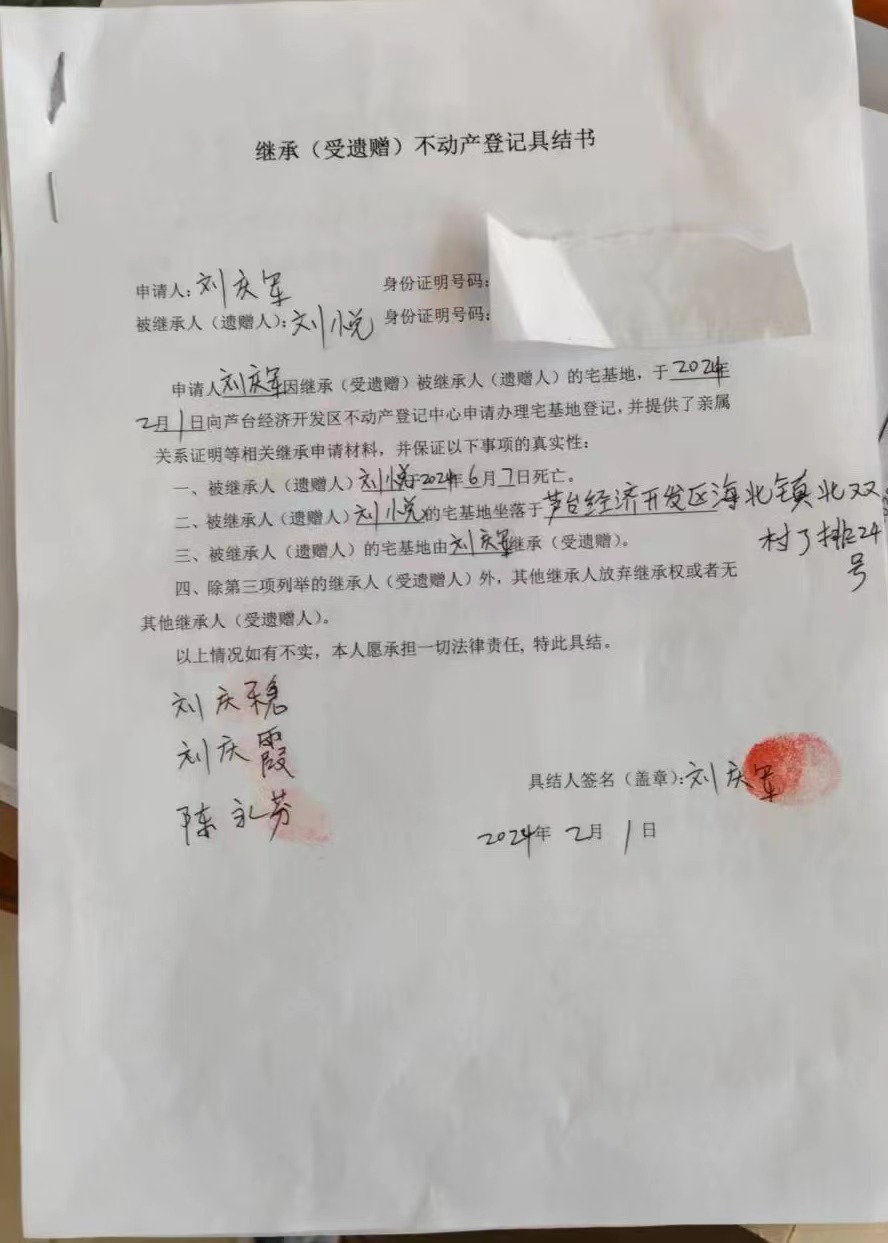 继承（受遗赠）不动产登记具结书
申请人：刘庆军 身份证明号码：
被继承人（遗赠人）：刘悦 身份证明号码：
申请人刘庆军因继承（受遗赠）被继承人（遗赠人）的宅基地，于2024年
2月1日向芦台经济开发区不动产登记中心申请办理宅基地登记，并提供了亲属
关系证明等相关继承申请材料，并保证以下事项的真实性：
一、被继承人（遗赠人）刘悦于2024年6月7日死亡。
二、被继承人（遗赠人）刘悦的宅基地坐落于芦台经济开发区海北镇北双
村了排24
号
三、被继承人（遗赠人）的宅基地由刘庆军继承（受遗赠）。
四、除第三项列举的继承人（受遗赠人）外，其他继承人放弃继承权或者无
其他继承人（受遗赠人）。
以上情况如有不实，本人愿承担一切法律责任，特此具结。
刘庆穂
刘庆霞
陈礼芬
具结人签名（盖章）：刘庆军
2024年2月1日